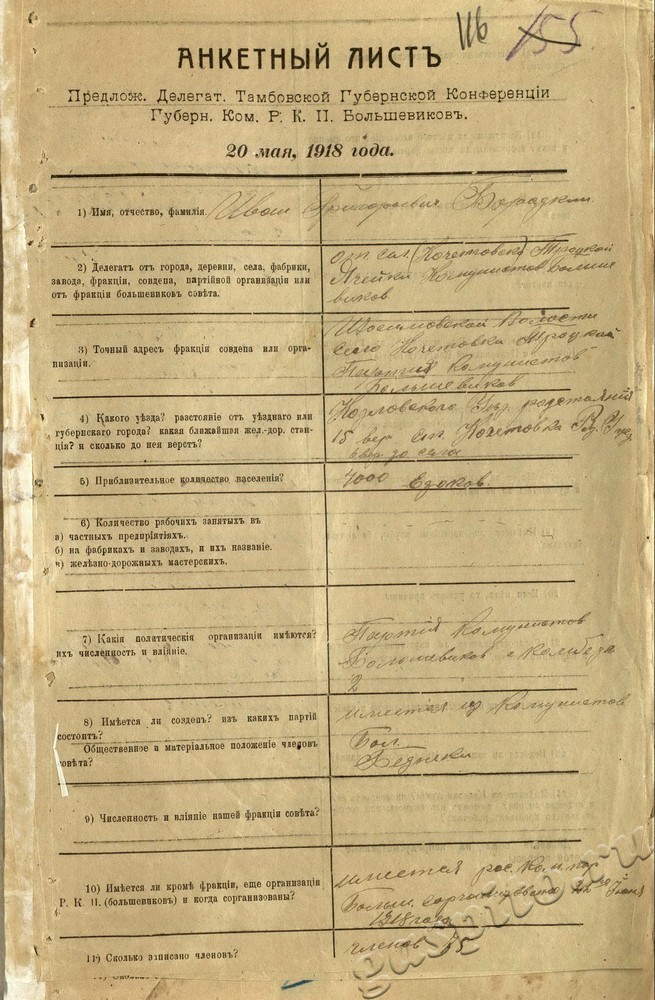 116 155
АНКЕТНЫЙ ЛИСТЪ
Предлож. Делегат. Тамбовской Губернской Конференціи
Губерн. Ком. Р. К. П. Большевиковъ.
20 мая, 1918 года.
1) Имя, отчество, фамилія. Иван Григорьевич
2) Делегат отъ города, деревни, села, фабрики,
завода, фракціи, совдепа, партійной организаціи или
от фракціи большевиковъ совѣта.
Троцкой
Ячейки Комунистов Больше
виков
3) Точный адресъ фракціи совдепа или орга-
низаціи.
Волости
село Кочетовка Троцкой
Партия Комунистов
Большевиков
4) Какого уѣзда? разстояніе отъ уѣзднаго или
губернскаго города? какая ближайшая жел.-дор. стан-
ція? и сколько до нея верстъ?
Козловского Уез. растояния
15 вер. ст. Кочетовка
до села
5) Приблизительное количество населенія?
4000 Едоков.
6) Количество рабочих занятыхъ въ
а) частных предпріятіяхъ.
б) на фабриках и заводах, и ихъ названіе.
в) желѣзно-дорожных мастерских.
7) Какія политическія организаціи имѣются?
ихъ численность и вліяніе.
Партия Комунистов
Большевиков и Комбеда
2
8) Имѣется ли совдепъ? изъ какихъ партій
состоитъ?
Общественное и матеріальное положеніе членовъ
совѣта?
имеется из Комунистов
Бол.
Бедняки
9) Численность и вліяніе нашей фракціи совѣта?
10) Имѣется ли кромѣ фракціи, еще организаціи
Р. К. П. (большевиков) и когда сорганизованы?
имеется рос. Ком. пар
Больш. сорганизована Июня
1918 года
11) Сколько записано членовъ?
членов 75